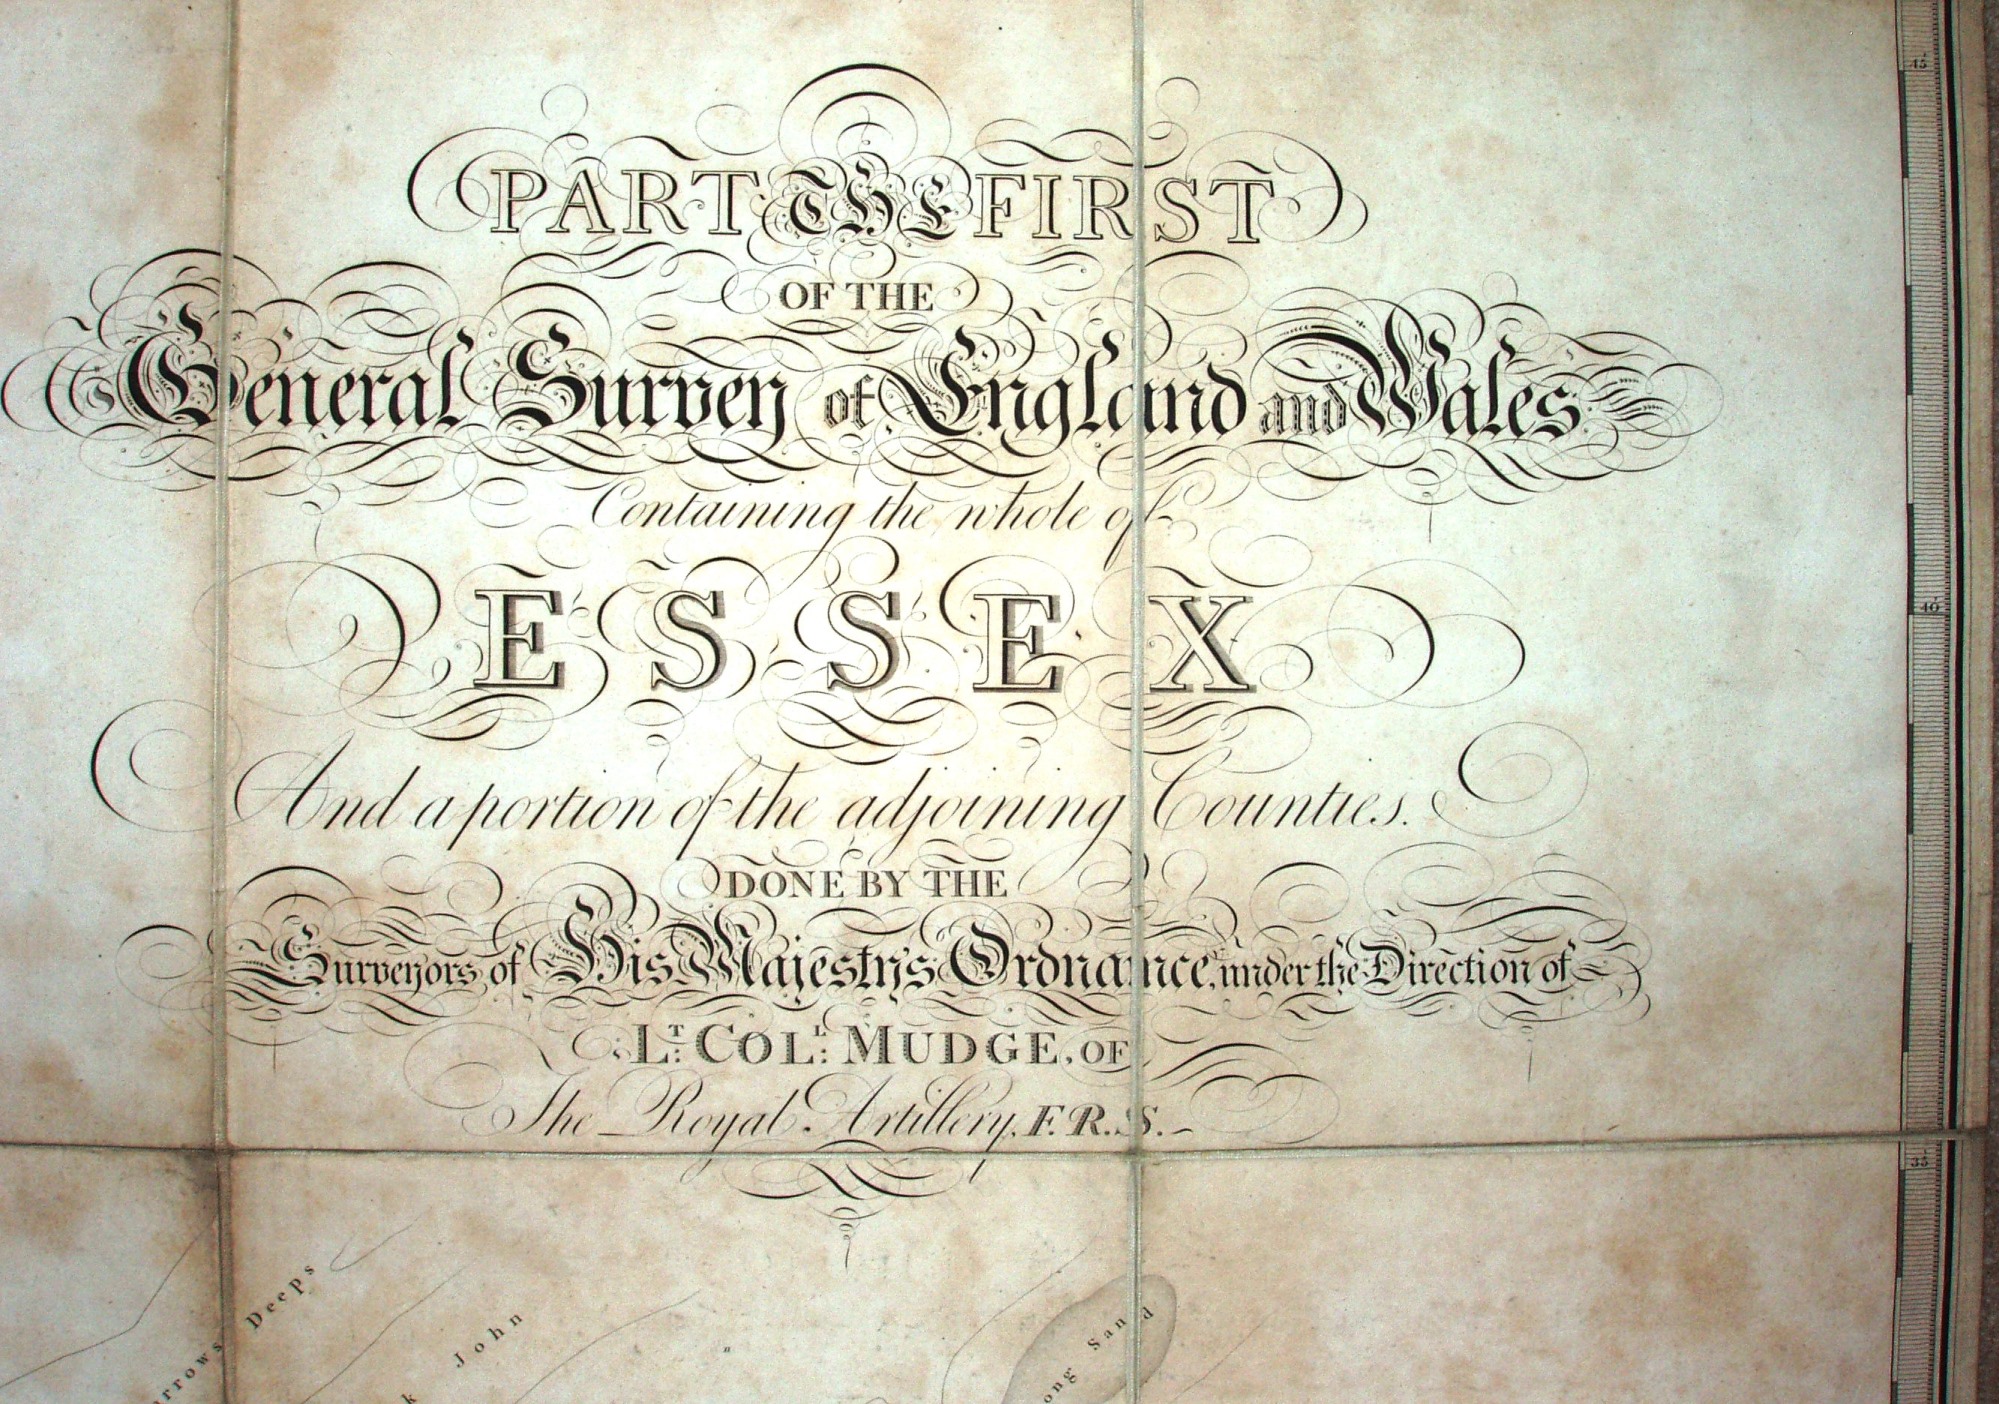 PART THE FIRST
OF THE
General Survey of England and Wales
Containing the whole of
ESSEX
And a portion of the adjoining Counties.
DONE BY THE
Surveyors of His Majesty's Ordnance, under the Direction of
LT. COLL. MUDGE, OF
The Royal Artillery, F.R.S.
45
40
35
arrows Deeps
k John
ong Sand